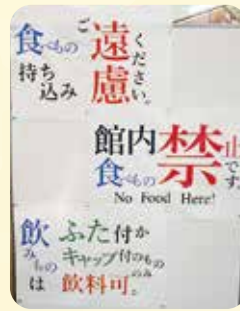 食べもの
持ち込み
ご遠慮ください。
館内
食べもの
禁止です
No Food Here!
飲みものは
ふた付か
キャップ付のもののみ
飲料可。